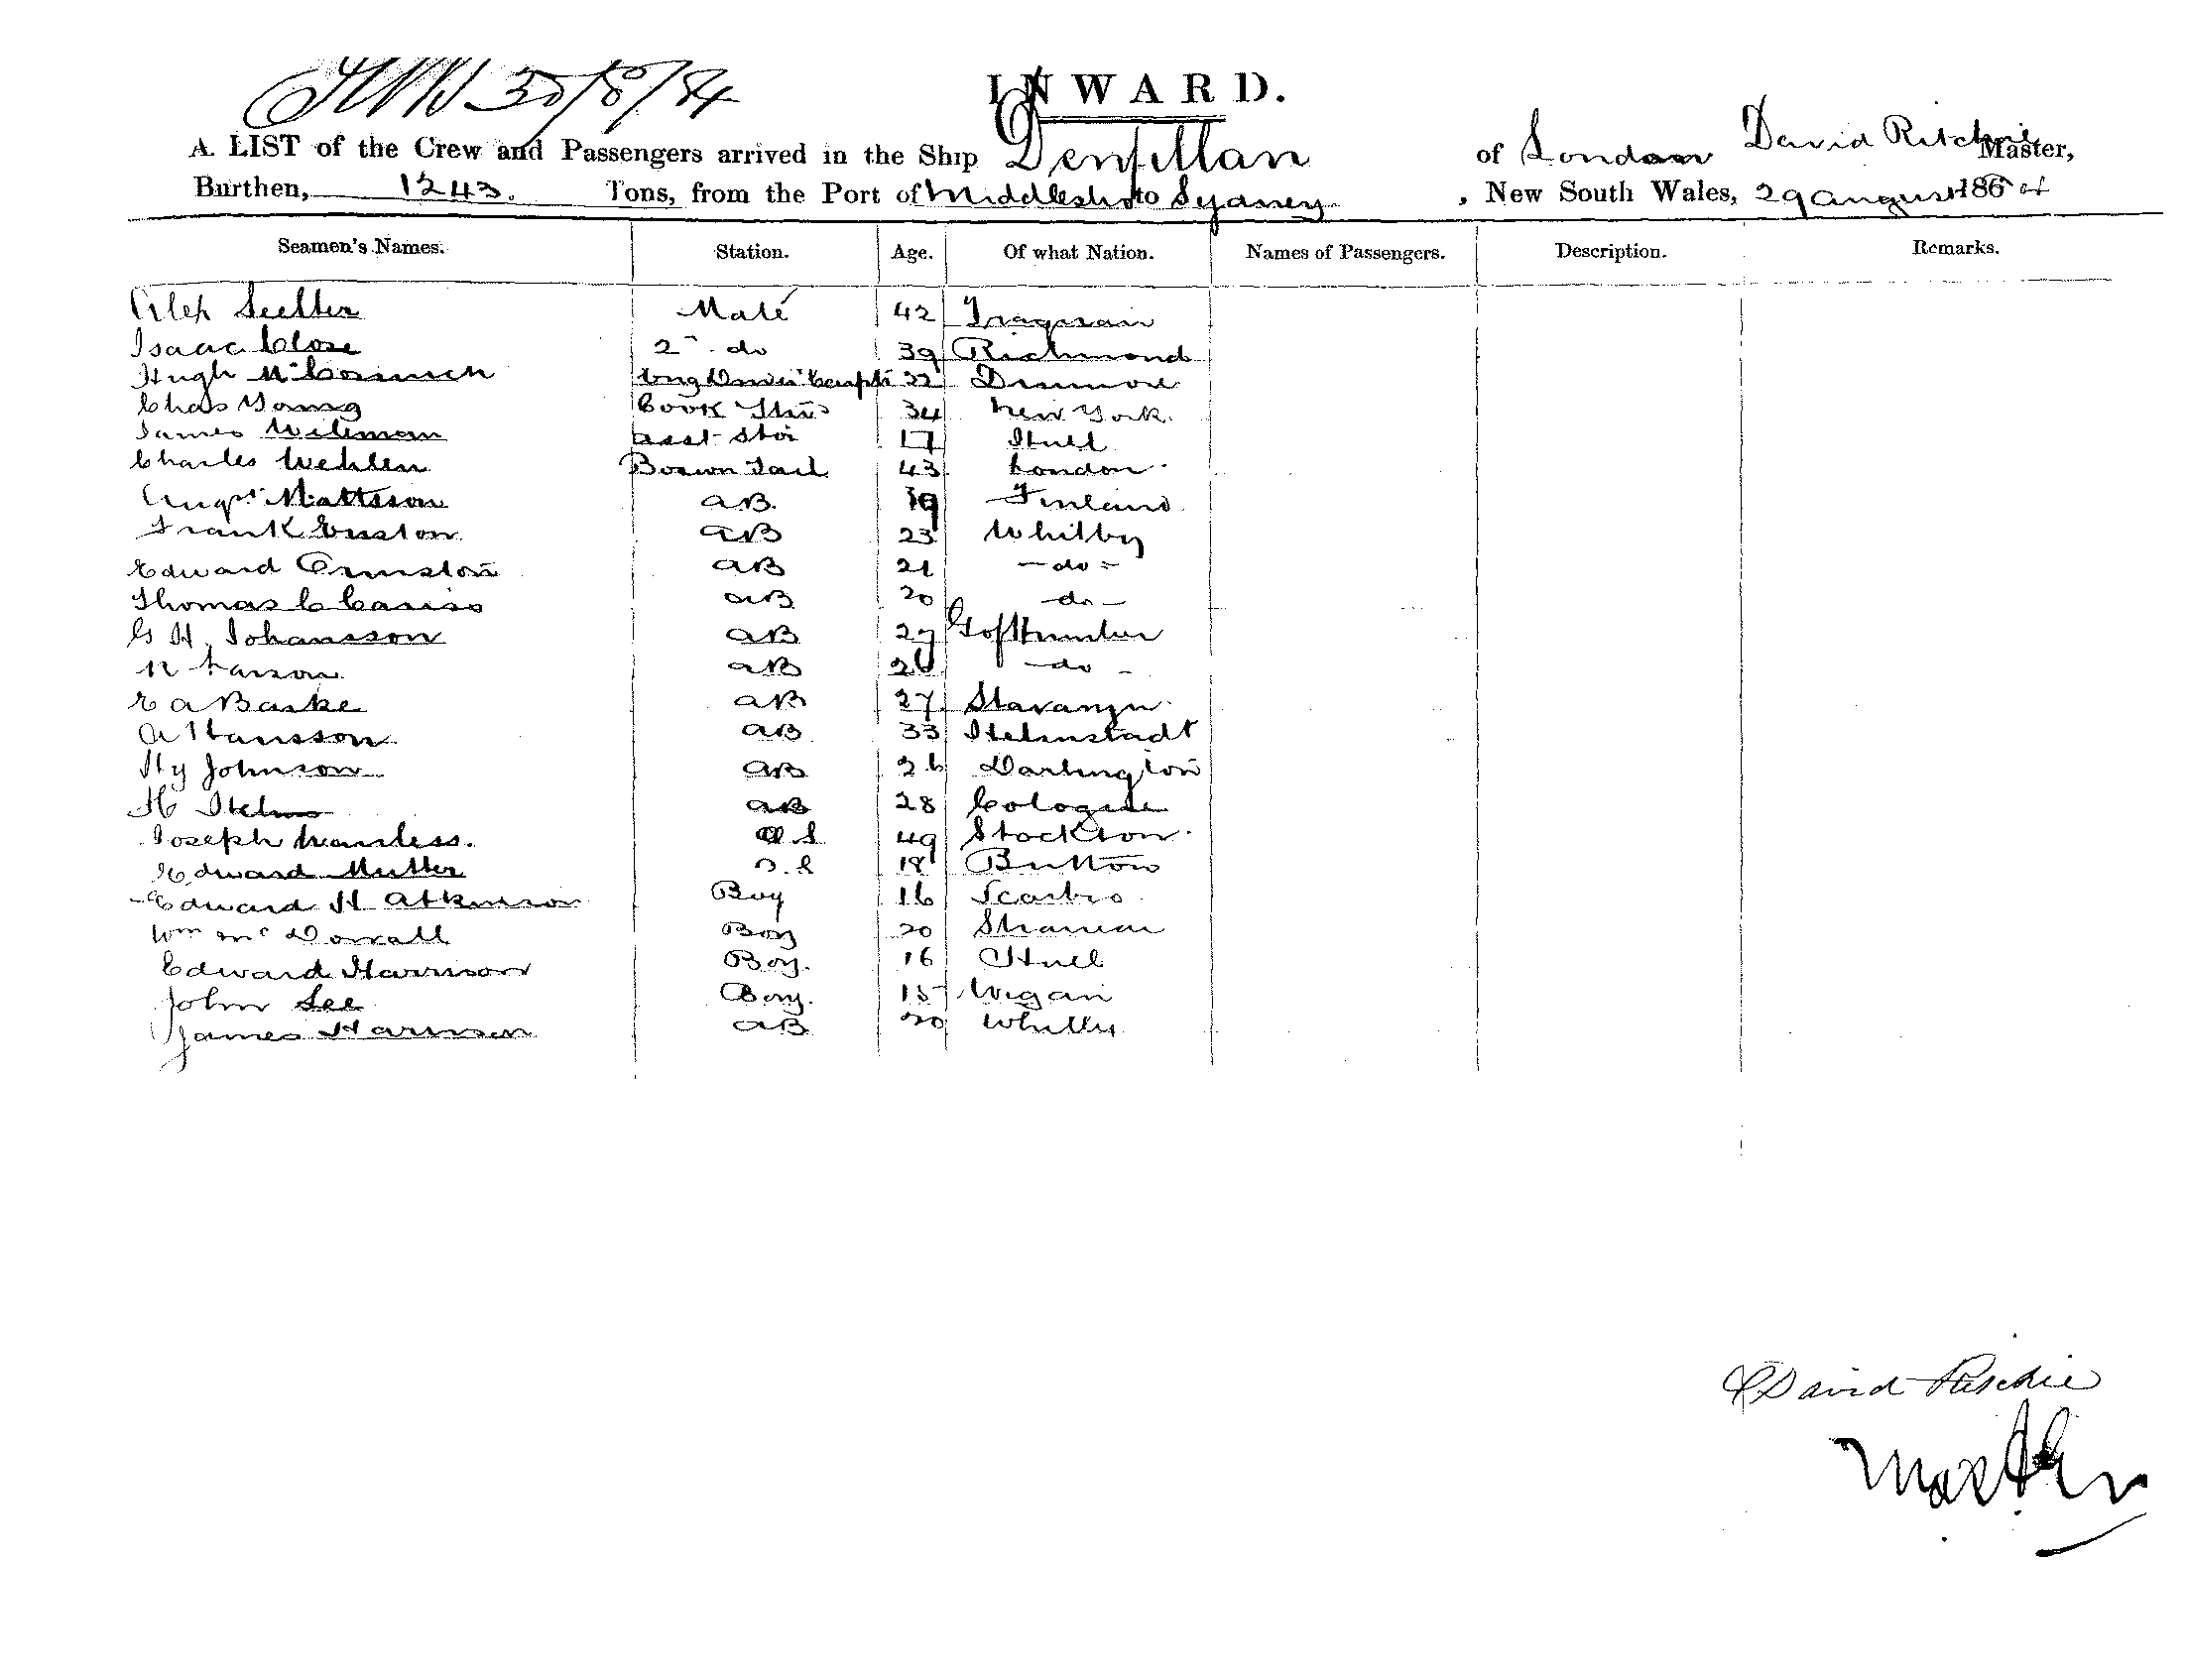 30/8/84
INWARD.
A LIST of the Crew and Passengers arrived in the Ship Denfillan of London David Ritchie Master,
Burthen, 1243. Tons, from the Port of Middlesbro to Sydney, New South Wales, 29 August 1864
Seamen's Names. Station. Age. Of what Nation. Names of Passengers. Description. Remarks.
Alex Mate 42
Isaac Close 2 do 39 Richmond
Hugh McCormick 22
Chas Young Cook 34 New York.
James Wileman asst 17 Hull
Charles Wehlen Boswn 43 London
Augs Mattsson AB. 19 Finland
Frank AB 23 Whitby
Edward Ormston AB 21 - do -
Thomas C AB 20 - do -
G H. Johansson AB 27
N Larson AB 26 - do -
E A Barke AB 27 Stavanger
A Hansson AB 33 Helmstadt
Hy Johnson AB 26 Darlington
H Helms AB 28 Cologne
Joseph Wanless. O.S 49 Stockton
Edward O.S 18
Edward H Atkinson Boy 16 Scarbro
Wm Mc Boy 20
Edward Harrison Boy. 16 Hull
John Lee Boy. 15 Wigan
James Harrison AB 20 Whitby
David Ritchie
Master